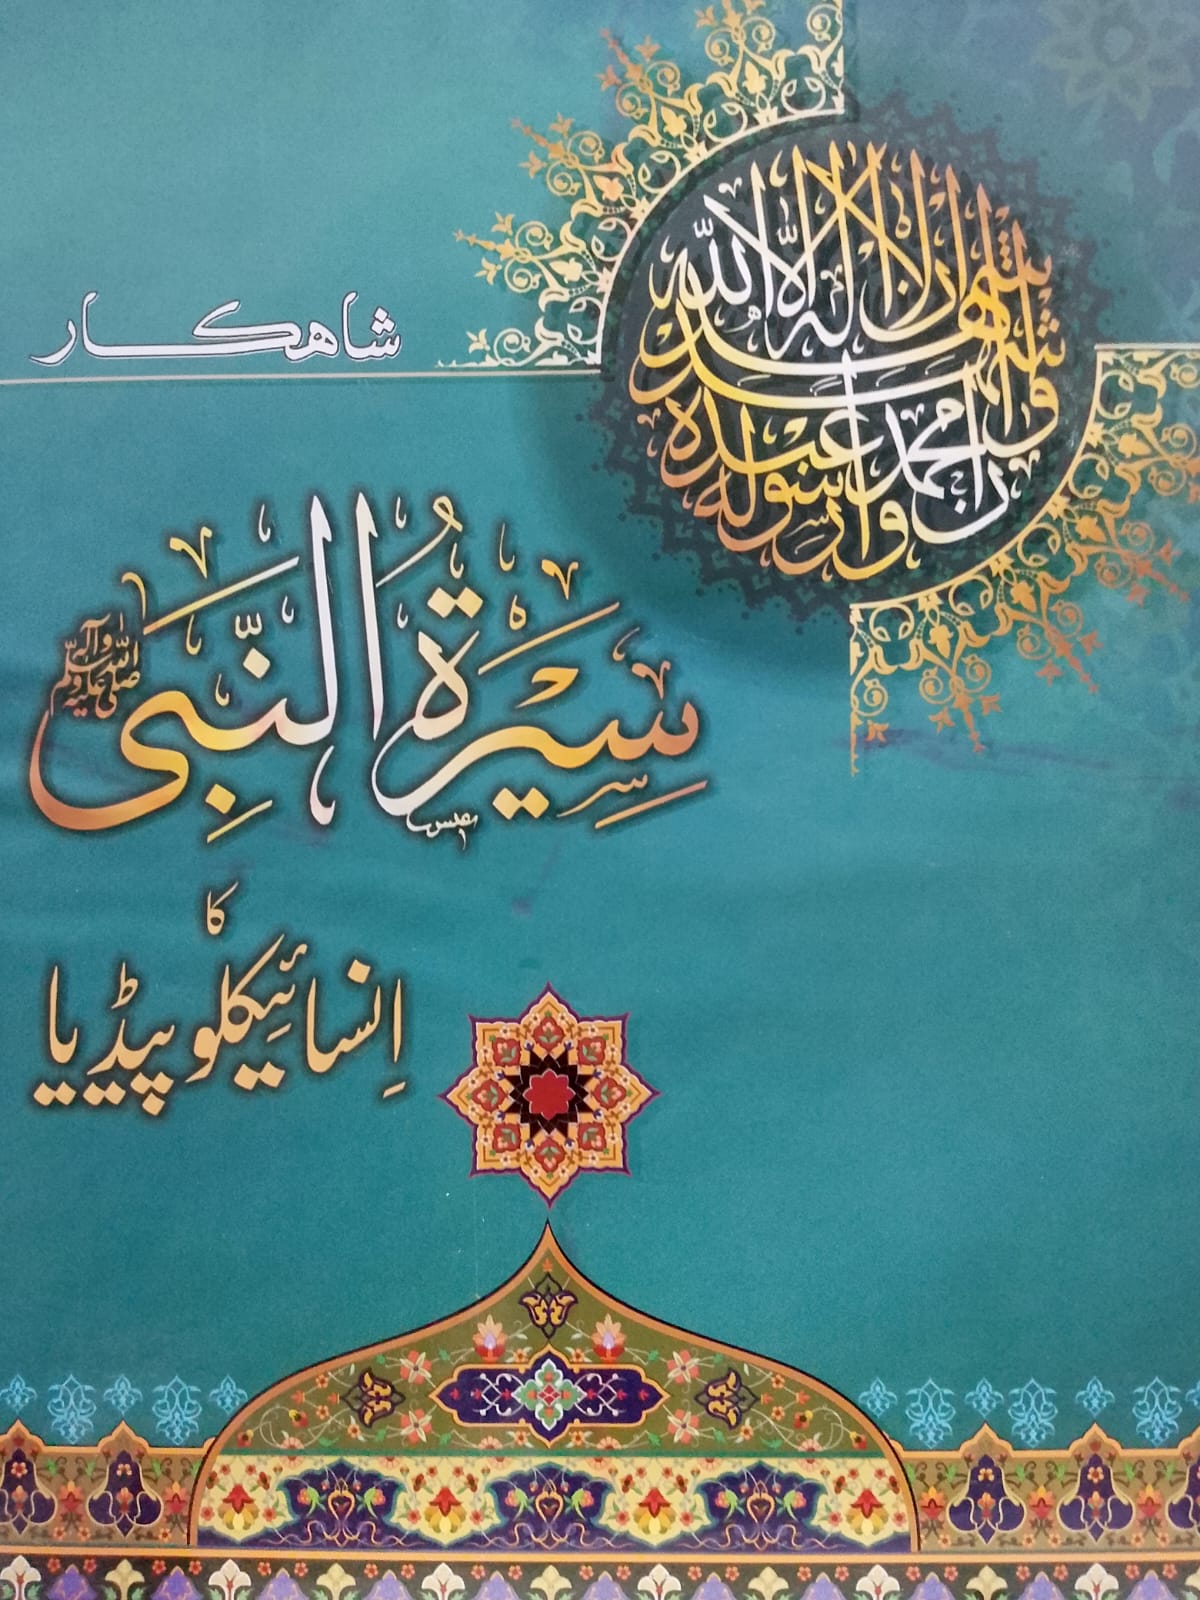 اشهد ان لا اله الا الله
واشهد ان محمدا عبده ورسوله
شاهکار
سِیرَةُ النَّبِی صلی اللہ علیہ وآلہ وسلم
کا
اِنسائیکلوپیڈیا